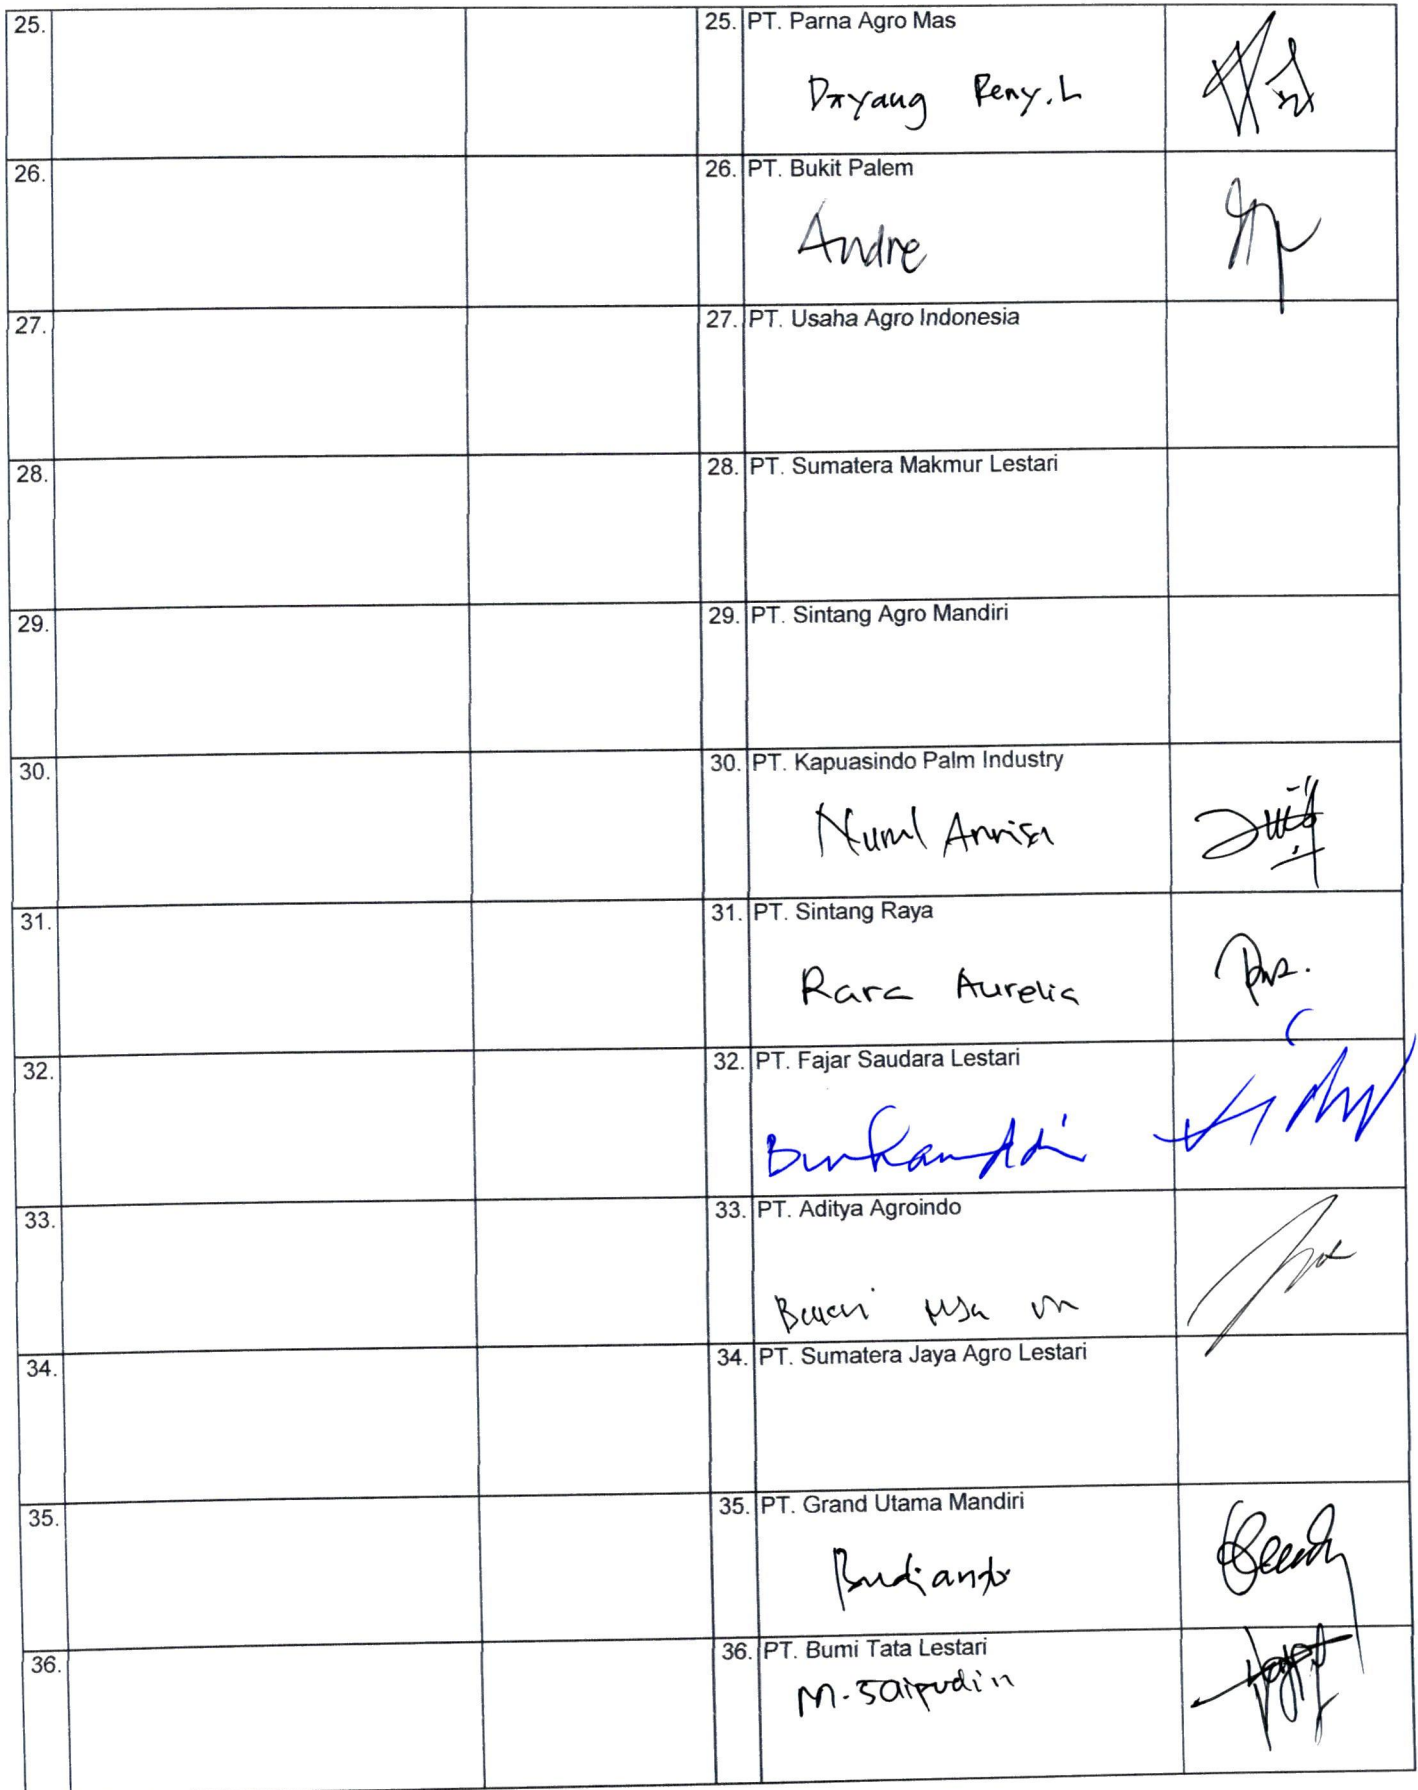 25. 25. PT. Parna Agro Mas
Dayang Reny. L
26. 26. PT. Bukit Palem
Andre
27. 27. PT. Usaha Agro Indonesia
28. 28. PT. Sumatera Makmur Lestari
29. 29. PT. Sintang Agro Mandiri
30. 30. PT. Kapuasindo Palm Industry
Nurul Annisa
31. 31. PT. Sintang Raya
Rara Aurelia
32. 32. PT. Fajar Saudara Lestari
33. 33. PT. Aditya Agroindo
34. 34. PT. Sumatera Jaya Agro Lestari
35. 35. PT. Grand Utama Mandiri
Budianto
36. 36. PT. Bumi Tata Lestari
M. Saipudin